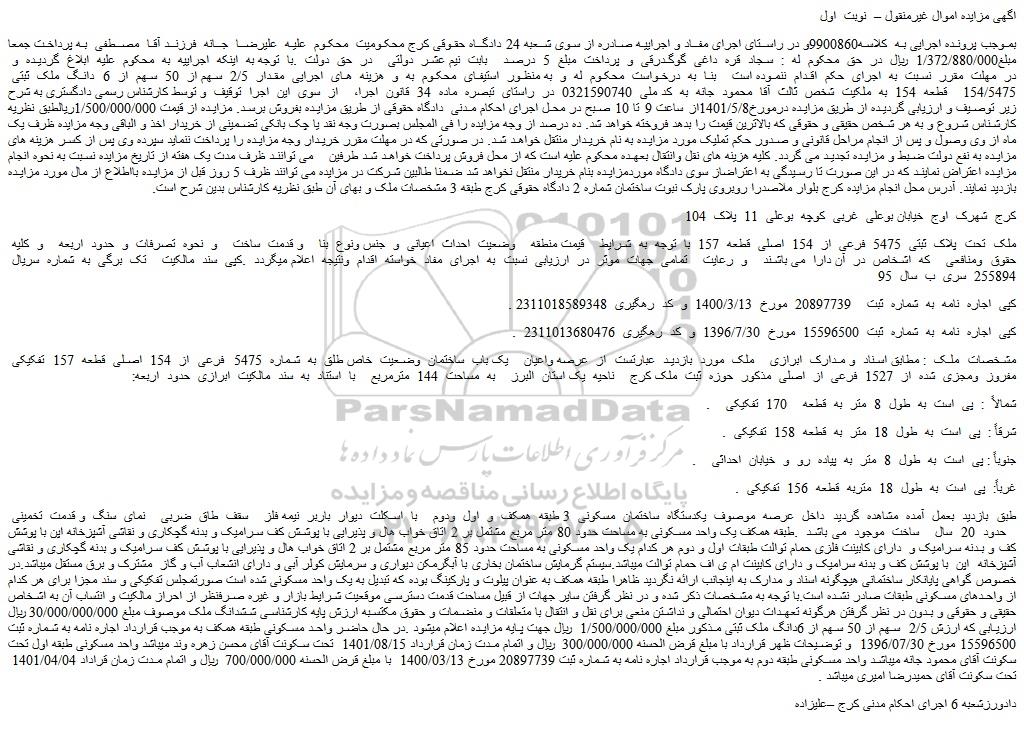 آگهی مزایده اموال غیرمنقول – نوبت اول
بموجب پرونده اجرایی به کلاسه9900860و در راستای اجرای مفاد و اجراییه صادره از سوی شعبه 24 دادگاه حقوقی کرج محکومیت محکوم علیه علیرضا جانه فرزند آقا مصطفی به پرداخت جمعا
مبلغ1/372/880/000 ریال در حق محکوم له : سجاد قره داغی گوگدرقی و پرداخت مبلغ 5 درصد بابت نیم عشر دولتی در حق دولت .با توجه به اینکه اجراییه به محکوم علیه ابلاغ گردیده و
در مهلت مقرر نسبت به اجرای حکم اقدام ننموده است بنا به درخواست محکوم له و به منظور استیفای محکوم به و هزینه های اجرایی مقدار 2/5 سهم از 50 سهم از 6 دانگ ملک ثبتی
154/5475 قطعه 154 به ملکیت شخص ثالث آقا محمود جانه به کد ملی 0321590740 در راستای تبصره ماده 34 قانون اجرا، از سوی این اجرا توقیف و توسط کارشناس رسمی دادگستری به شرح
زیر توصیف و ارزیابی گردیده از طریق مزایده درمورخ1401/5/8از ساعت 9 تا 10 صبح در محل اجرای احکام مدنی دادگاه حقوقی از طریق مزایده بفروش برسد. مزایده از قیمت 1/500/000/000ریالطبق نظریه
کارشناس شروع و به هر شخص حقیقی و حقوقی که بالاترین قیمت را بدهد فروخته خواهد شد. ده درصد از وجه مزایده را فی المجلس بصورت وجه نقد یا چک بانکی تضمینی از خریدار اخذ و الباقی وجه مزایده ظرف یک
ماه از وی وصول و پس از انجام مراحل قانونی و صدور حکم تملیک مورد مزایده به نام خریدار منتقل خواهد شد. در صورتی که در مهلت مقرر خریدار وجه مزایده را پرداخت ننماید سپرده وی پس از کسر هزینه های
مزایده به نفع دولت ضبط و مزایده تجدید می گردد. کلیه هزینه های نقل وانتقال بعهده محکوم علیه است که از محل فروش پرداخت خواهد شد طرفین می توانند ظرف مدت یک هفته از تاریخ مزایده نسبت به نحوه انجام
مزایده اعتراض نمایند که در این صورت تا رسیدگی به اعتراضاز سوی دادگاه موردمزایده بنام خریدار منتقل نخواهد شد ضمنا طالبین شرکت در مزایده می توانند ظرف 5 روز قبل از مزایده بااطلاع از مال مورد مزایده
بازدید نمایند. آدرس محل انجام مزایده کرج بلوار ملاصدرا روبروی پارک نبوت ساختمان شماره 2 دادگاه حقوقی کرج طبقه 3 مشخصات ملک و بهای آن طبق نظریه کارشناس بدین شرح است.
کرج شهرک اوج خیابان بوعلی غربی کوچه بوعلی 11 پلاک 104
ملک تحت پلاک ثبتی 5475 فرعی از 154 اصلی قطعه 157 با توجه به شرایط قیمت منطقه وضعیت احداث اعیانی و جنس ونوع بنا و قدمت ساخت و نحوه تصرفات و حدود اربعه و کلیه
حقوق ومنافعی که اشخاص در آن دارا می باشند و رعایت تمامی جهات موثر در ارزیابی نسبت به اجرای مفاد خواسته اقدام ونتیجه اعلام میگردد .کپی سند مالکیت تک برگی به شماره سریال
255894 سری ب سال 95
کپی اجاره نامه به شماره ثبت 20897739 مورخ 1400/3/13 و کد رهگیری 2311018589348 .
کپی اجاره نامه به شماره ثبت 15596500 مورخ 1396/7/30 و کد رهگیری 2311013680476 .
مشخصات ملک : مطابق اسناد و مدارک ابرازی ملک مورد بازدید عبارتست از عرصه واعیان یک باب ساختمان وضعیت خاص طلق به شماره 5475 فرعی از 154 اصلی قطعه 157 تفکیکی
مفروز ومجزی شده از 1527 فرعی از اصلی مذکور حوزه ثبت ملک کرج ناحیه یک استان البرز به مساحت 144 مترمربع با استناد به سند مالکیت ابرازی حدود اربعه:
شمالاً : پی است به طول 8 متر به قطعه 170 تفکیکی .
شرقاً : پی است به طول 18 متر به قطعه 158 تفکیکی .
جنوباً : پی است به طول 8 متر به پیاده رو و خیابان احداثی .
غرباً: پی است به طول 18 متربه قطعه 156 تفکیکی .
طبق بازدید بعمل آمده مشاهده گردید داخل عرصه موصوف یکدستگاه ساختمان مسکونی 3 طبقه همکف و اول ودوم با اسکلت دیوار باربر نیمه فلز سقف طاق ضربی نمای سنگ و قدمت تخمینی
حدود 20 سال ساخت موجود می باشد .طبقه همکف یک واحد مسکونی به مساحت حدود 80 متر مربع مشتمل بر 2 اتاق خواب هال و پذیرایی با پوشش کف سرامیک و بدنه گچکاری و نقاشی آشپزخانه اپن با پوشش
کف و بدنه سرامیک و دارای کابینت فلزی حمام توالت طبقات اول و دوم هر کدام یک واحد مسکونی به مساحت حدود 85 متر مربع مشتمل بر 2 اتاق خواب هال و پذیرایی با پوشش کف سرامیک و بدنه گچکاری و نقاشی
آشپزخانه اپن با پوشش کف و بدنه سرامیک و دارای کابینت ام ی اف حمام توالت میباشد.سیستم گرمایش ساختمان بخاری با آبگرمکن دیواری و سرمایش کولر آبی و دارای انشعاب آب و گاز مشترک و برق مستقل میباشد.در
خصوص گواهی پایانکار ساختمانی هیچگونه اسناد و مدارک به اینجانب ارائه نگردید ظاهرا طبقه همکف به عنوان پیلوت و پارکینگ بوده که تبدیل به یک واحد مسکونی شده است صورتمجلس تفکیکی و سند مجزا برای هر کدام
از واحدهای مسکونی طبقات صادر نشده است.با توجه به مشخصات ذکر شده و در نظر گرفتن سایر جهات از قبیل مساحت قدمت دسترسی موقعیت شرایط بازار و غیره صرفنظر از احراز مالکیت و انتساب آن به اشخاص
حقیقی و حقوقی و بدون در نظر گرفتن هرگونه تعهدات دیون احتمالی و نداشتن منعی برای نقل و انتقال با متعلقات و منضمات و حقوق مکتسبه ارزش پایه کارشناسی ششدانگ ملک موصوف مبلغ 30/000/000/000 ریال
ارزیابی که ارزش 2/5 سهم از 50 سهم از 6دانگ ملک ثبتی مذکور مبلغ 1/500/000/000 ریال جهت پایه مزایده اعلام میشود .در حال حاضر واحد مسکونی طبقه همکف به موجب قرارداد اجاره نامه به شماره ثبت
15596500 مورخ 1396/07/30 و توضیحات ظهر قرارداد با مبلغ قرض الحسنه 300/000/000 ریال و اتمام مدت زمان قرارداد 1401/08/15 تحت سکونت آقای محسن زهره وند میباشد واحد مسکونی طبقه اول تحت
سکونت آقای محمود جانه میباشد واحد مسکونی طبقه دوم به موجب قرارداد اجاره نامه به شماره ثبت 20897739 مورخ 1400/03/13 با مبلغ قرض الحسنه 700/000/000 ریال و اتمام مدت زمان قراداد 1401/04/04
تحت سکونت آقای حمیدرضا امیری میباشد .
دادورزشعبه 6 اجرای احکام مدنی کرج –علیزاده
ParsNamadData
مرکز فرآوری اطلاعات پارس نماد داده ها
پایگاه اطلاع رسانی مناقصه و مزایده